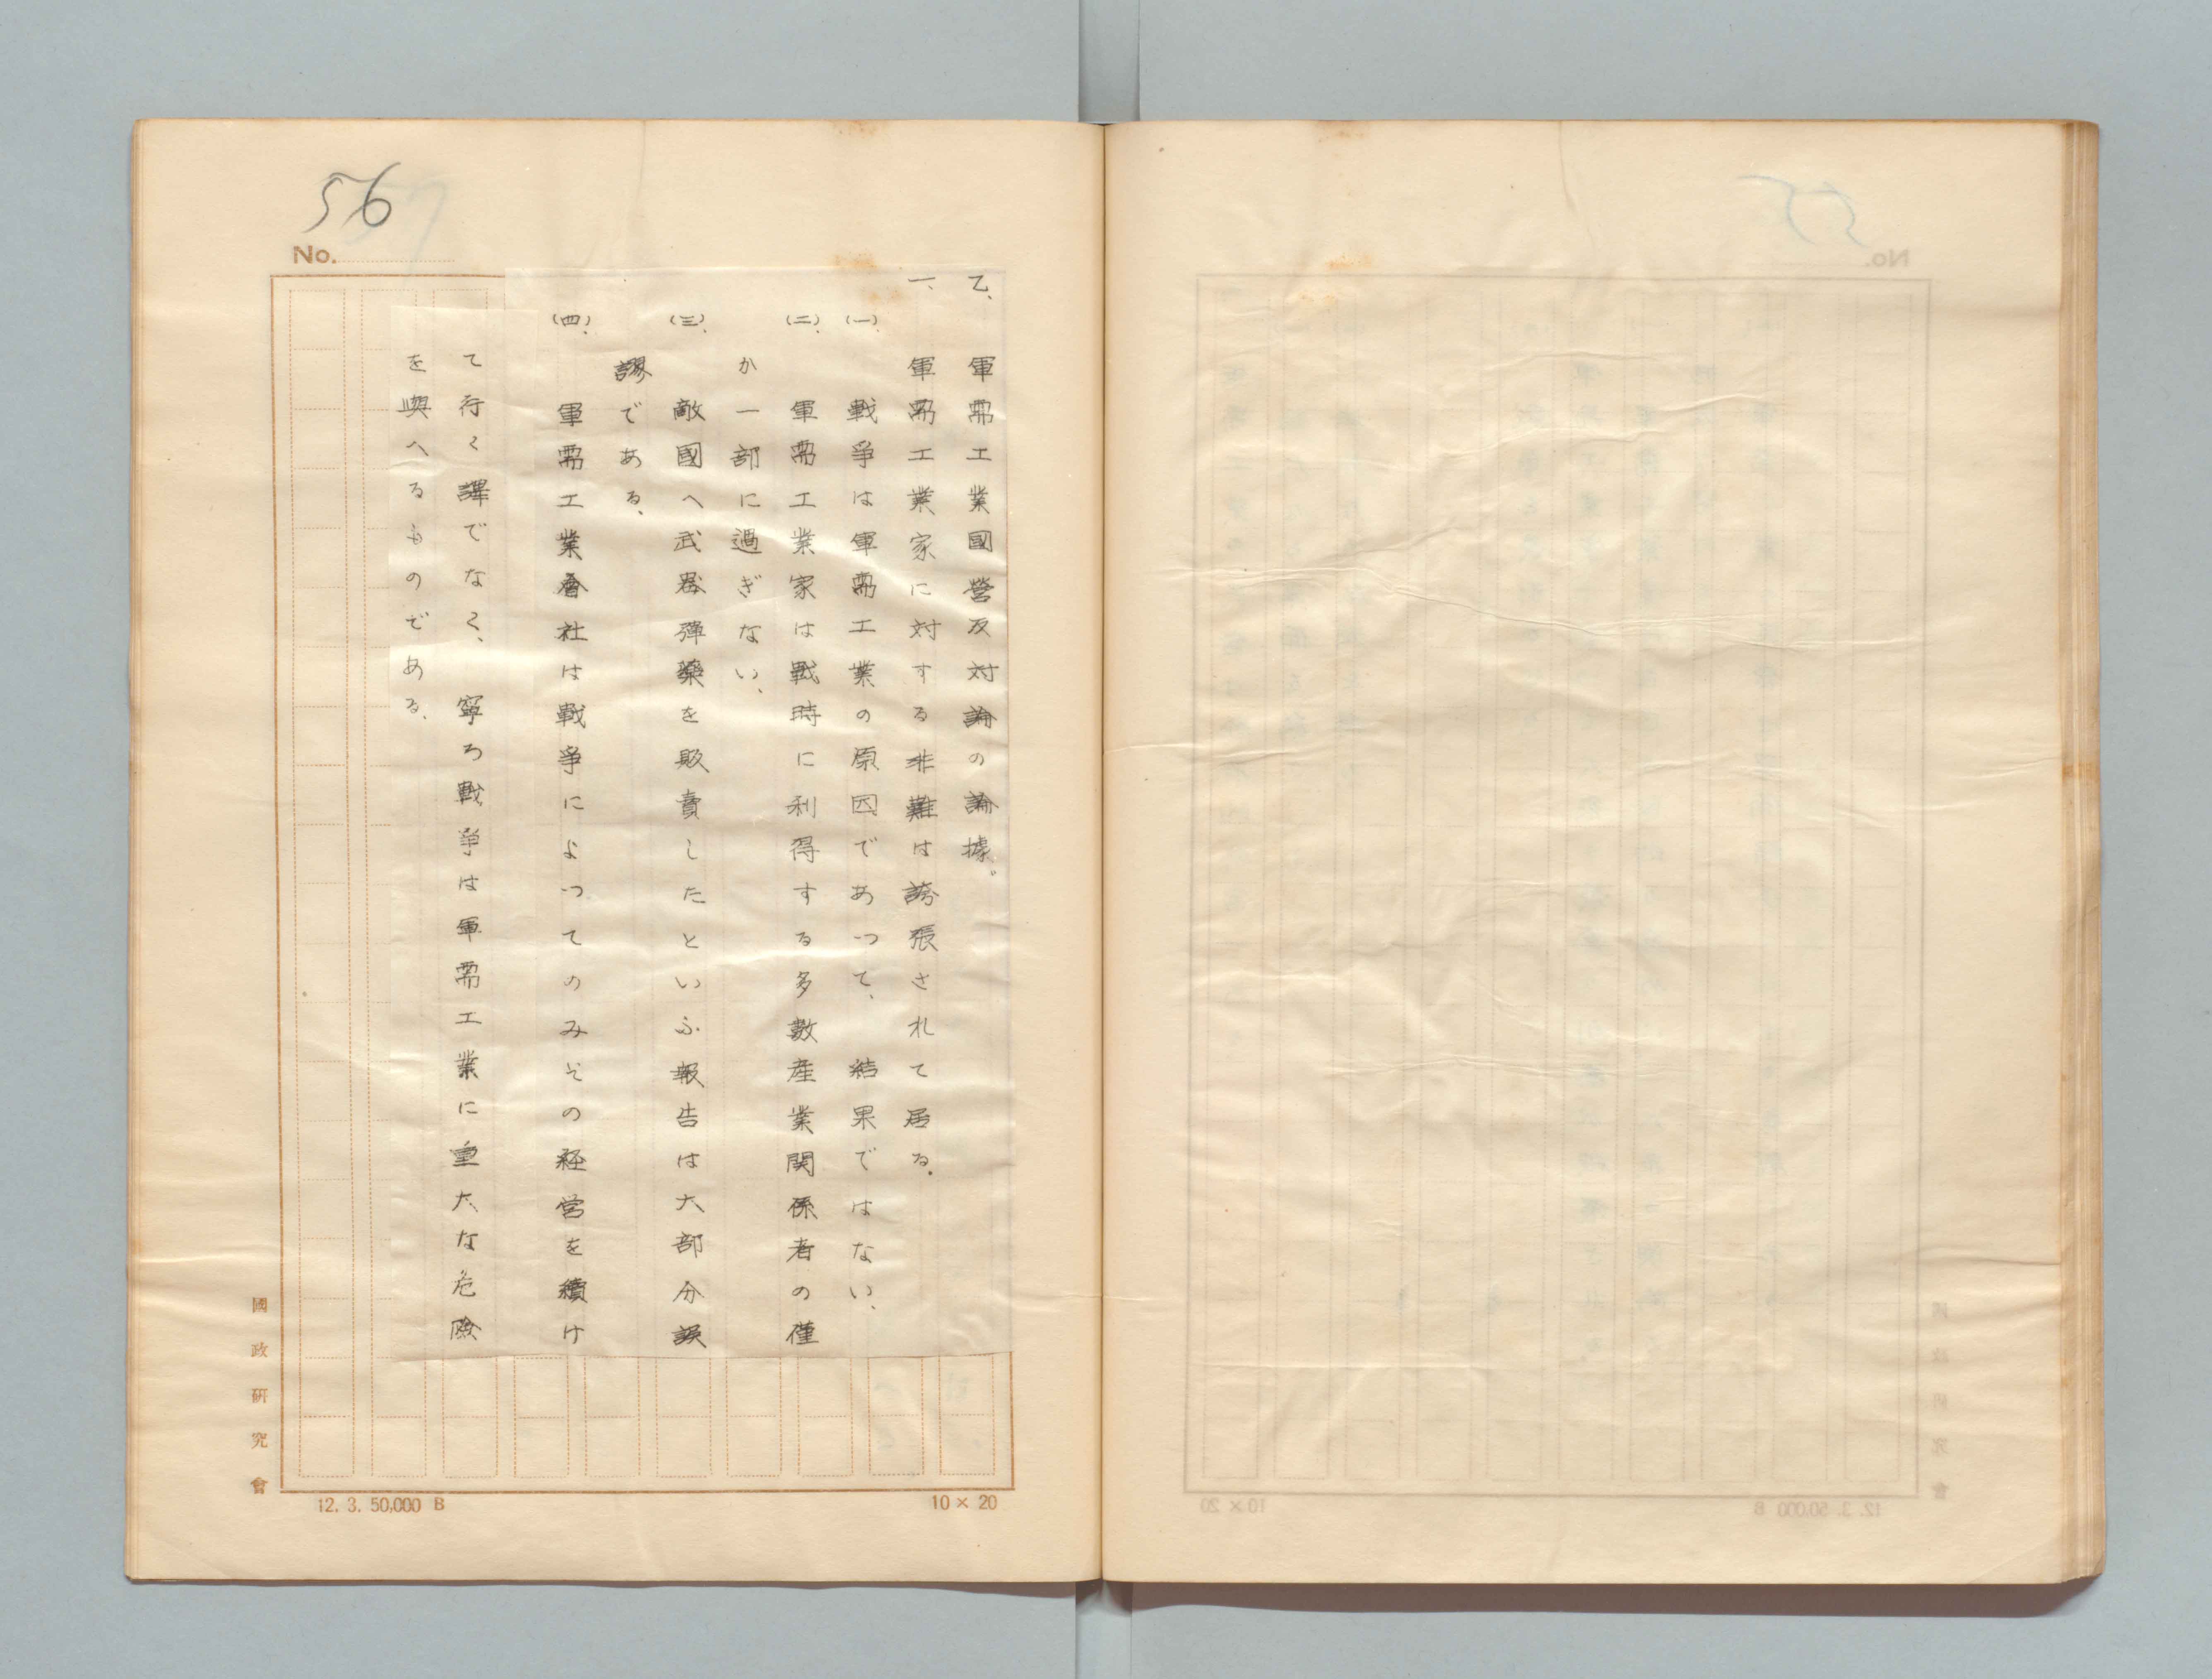 56
No.
乙、軍需工業國営反対論の論據。
一、軍需工業家に対する非難は誇張されて居る。
(一)、戦争は軍需工業の原因であつて、結果ではない、
(二)、軍需工業家は戦時に利得する多数産業関係者の僅
か一部に過ぎない、
(三)、敵國へ武器弾薬を販賣したといふ報告は大部分誤
謬である、
(四)、軍需工業會社は戦争によつてのみその経営を續け
て行く譯でなく、寧ろ戦争は軍需工業に重大な危險
を與へるものである、
國政研究會
12. 3. 50,000 B
10 × 20